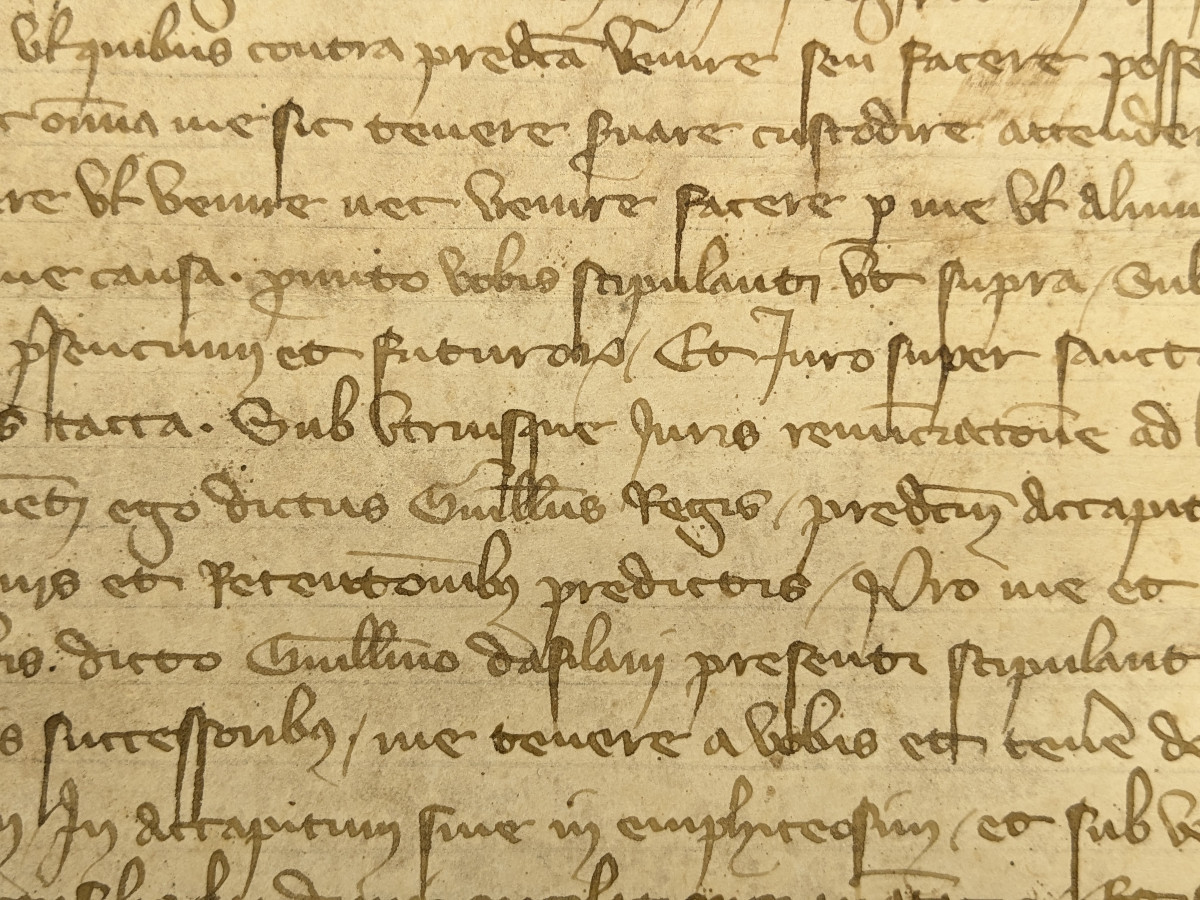 vl quibus contra predcā venire seu facere posse
omnia me sic tenere s̄uare custodire attender
ere vl venire nec venire facere p me vl aliu
me causa. promito vobis stipulanti vt supra / Sub
p̄sencium et futuroꝝ / Et Juro super sanct
s tacta. Sub vtriusque Juris renūciatōne ad
ego dictus Guillm̄s Regis / predcm̄ accapit
et Retentionibꝰ predictis / Pro me et
dicto Guillm̄o dasilarij presenti stipulant
s successoribꝰ / me tenere a vobis et tenē de
In accapitum siue in emphiteosim / et sub